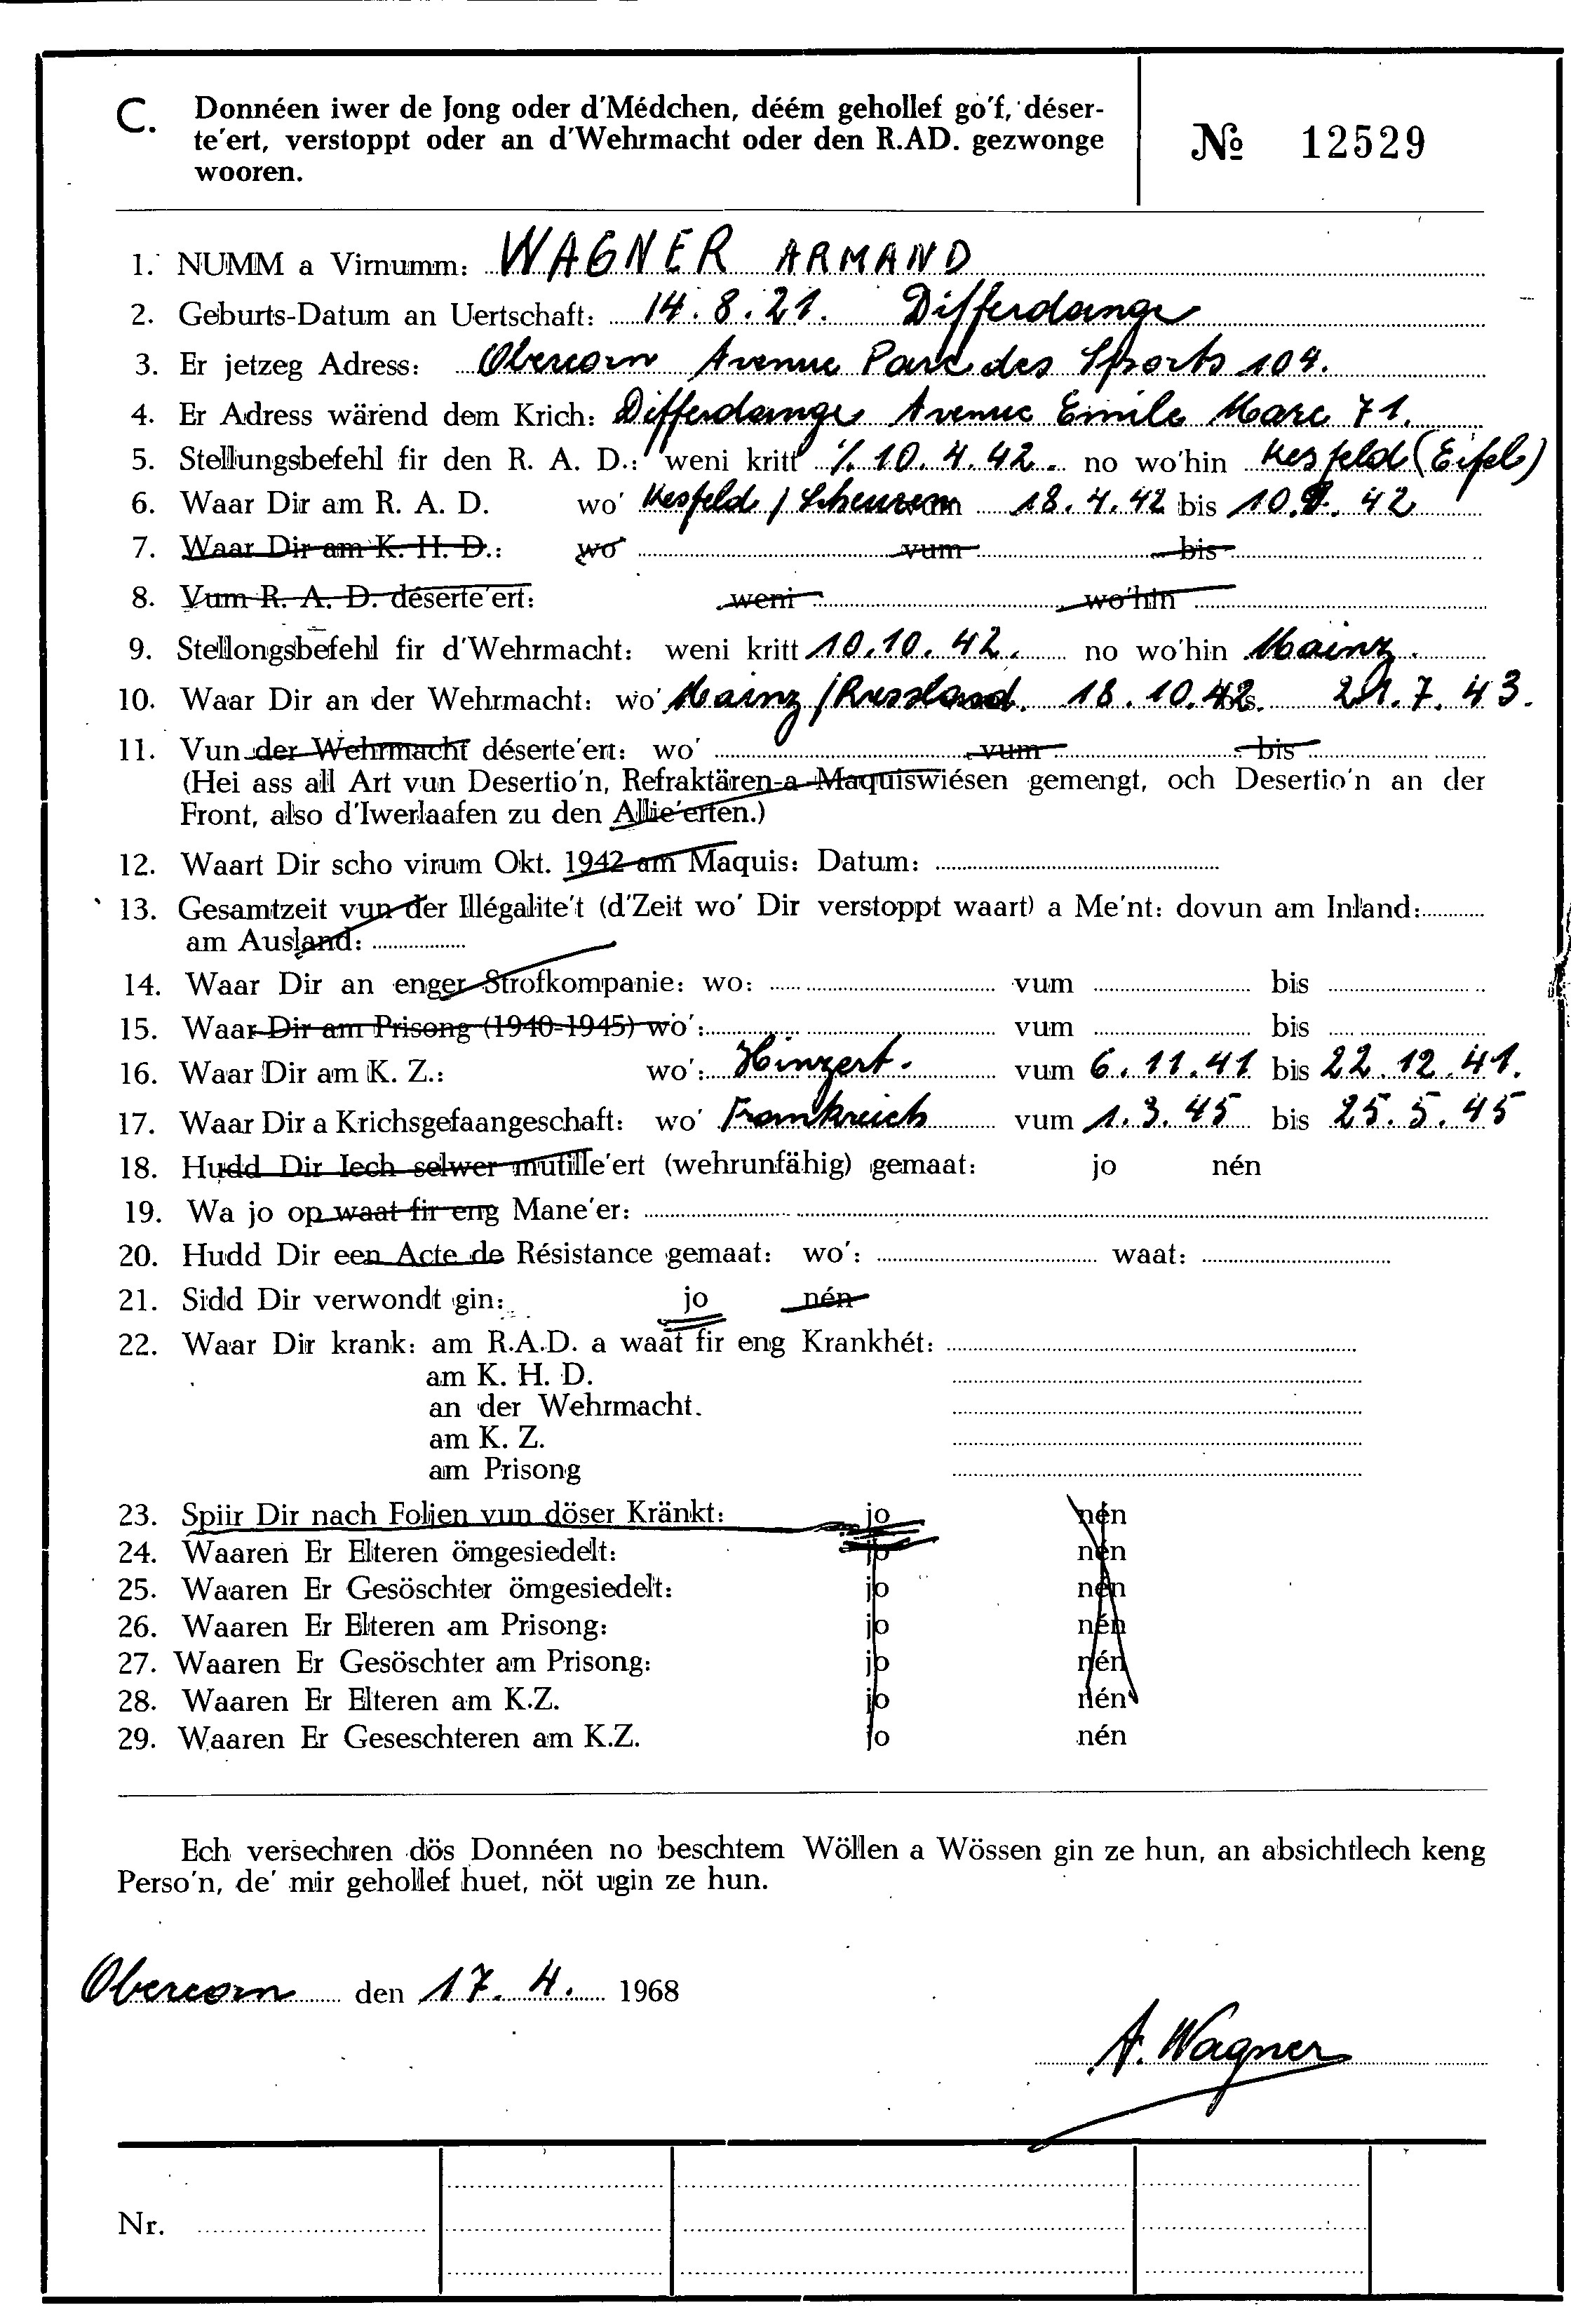 C. Donnéen iwer de Jong oder d'Médchen, déém gehollef go'f, déser-
te'ert, verstoppt oder an d'Wehrmacht oder den R.AD. gezwonge
wooren.
№ 12529
1. NUMM a Virnumm: WAGNER ARMAND
2. Geburts-Datum an Uertschaft: 14.8.21. Differdange
3. Er jetzeg Adress: Obercorn Avenue Parc des Sports 104.
4. Er Adress wärend dem Krich: Differdange Avenue Emile Marc 71.
5. Stellungsbefehl fir den R. A. D.: weni kritt 10.4.42. no wo'hin Kesfeld (Eifel)
6. Waar Dir am R. A. D. wo' Kesfeld / Scheuren vum 18.4.42 bis 10.9.42
7. Waar Dir am K. H. D.: wo' vum bis
8. Vum R. A. D. déserte'ert: weni wo'hin
9. Stellongsbefehl fir d'Wehrmacht: weni kritt 10.10.42. no wo'hin Mainz.
10. Waar Dir an der Wehrmacht: wo' Mainz / Russland. 18.10.42. bis 21.7.43.
11. Vun der Wehrmacht déserte'ert: wo' vum bis
(Hei ass all Art vun Desertio'n, Refraktären-a Maquiswiésen gemengt, och Desertio'n an der
Front, also d'Iwerlaafen zu den Allie'erten.)
12. Waart Dir scho virum Okt. 1942 am Maquis: Datum:
13. Gesamtzeit vun der Illégalite't (d'Zeit wo' Dir verstoppt waart) a Me'nt: dovun am Inland:
am Ausland:
14. Waar Dir an enger Strofkompanie: wo: vum bis
15. Waar Dir am Prisong (1940-1945) wo': vum bis
16. Waar Dir am K. Z.: wo': Hinzert. vum 6.11.41 bis 22.12.41.
17. Waar Dir a Krichsgefaangeschaft: wo' Frankreich vum 1.3.45 bis 25.5.45
18. Hudd Dir Iech selwer mutille'ert (wehrunfähig) gemaat: jo nén
19. Wa jo op waat fir eng Mane'er:
20. Hudd Dir een Acte de Résistance gemaat: wo': waat:
21. Sidd Dir verwondt gin: jo nén
22. Waar Dir krank: am R.A.D. a waat fir eng Krankhét:
am K. H. D.
an der Wehrmacht.
am K. Z.
am Prisong
23. Spiir Dir nach Folien vun döser Kränkt: jo nén
24. Waaren Er Elteren ömgesiedelt: jo nén
25. Waaren Er Gesöschter ömgesiedelt: jo nén
26. Waaren Er Elteren am Prisong: jo nén
27. Waaren Er Gesöschter am Prisong: jo nén
28. Waaren Er Elteren am K.Z. jo nén
29. Waaren Er Geseschteren am K.Z. jo nén
Ech versechren dös Donnéen no beschtem Wöllen a Wössen gin ze hun, an absichtlech keng
Perso'n, de' mir gehollef huet, nöt ugin ze hun.
Obercorn den 17.4. 1968
A. Wagner
Nr.